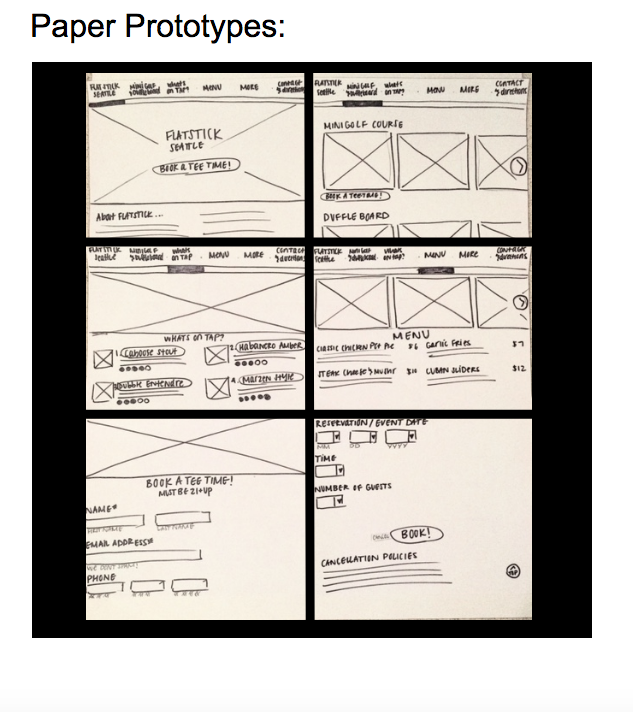 Paper Prototypes:
FLATSTICK SEATTLE
MINI GOLF
WHATS ON TAP?
MENU
MORE
CONTACT & directions
FLATSTICK
SEATTLE
BOOK A TEE TIME!
ABOUT FLATSTICK...
FLATSTICK Seattle
MINI GOLF
WHATS ON TAP?
MENU
MORE
CONTACT & directions
MINIGOLF COURSE
BOOK A TEETIME!
DUFFLE BOARD
FLATSTICK Seattle
MINI GOLF
WHATS ON TAP
MENU
MORE
CONTACT & directions
WHATS ON TAP?
1. Caboose Stout
2. Habanero Amber
Double Entendre
4. Marzen Style
FLATSTICK Seattle
MINI GOLF
WHATS ON TAP?
MENU
MORE
CONTACT & directions
MENU
CLASSIC CHICKEN POT PIE $6
GARLIC FRIES $7
$14
CUBAN SLIDERS $12
BOOK A TEE TIME!
MUST BE 21+UP
NAME*
FIRST NAME LAST NAME
EMAIL ADDRESS*
PHONE
# # # # # # # # #
RESERVATION / EVENT DATE
MM DD YYYY
TIME
NUMBER OF GUESTS
CANCEL BOOK!
CANCELLATION POLICIES
TOP